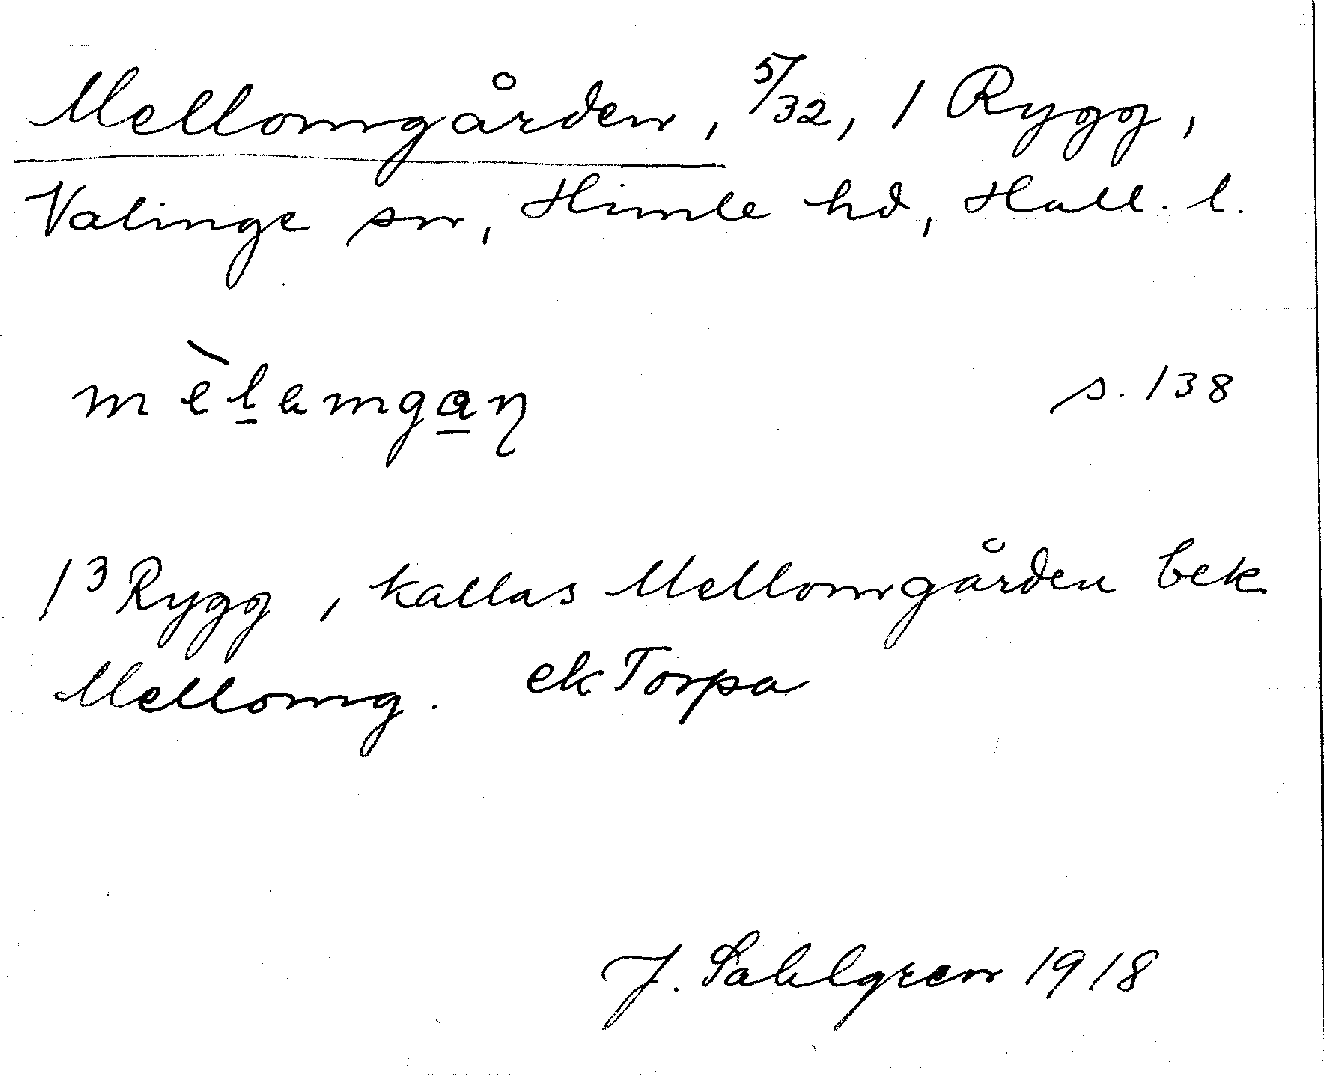 Mellomgården, 5/32, 1 Rygg,
Valinge sn, Himle hd, Hall. l.
mèlamgan s. 138
1³ Rygg, kallas Mellomgården bek
Mellomg. ek Torpa
J. Sahlgren 1918